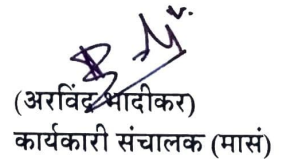 (अरविंद्र भादीकर)
कार्यकारी संचालक (मासं)